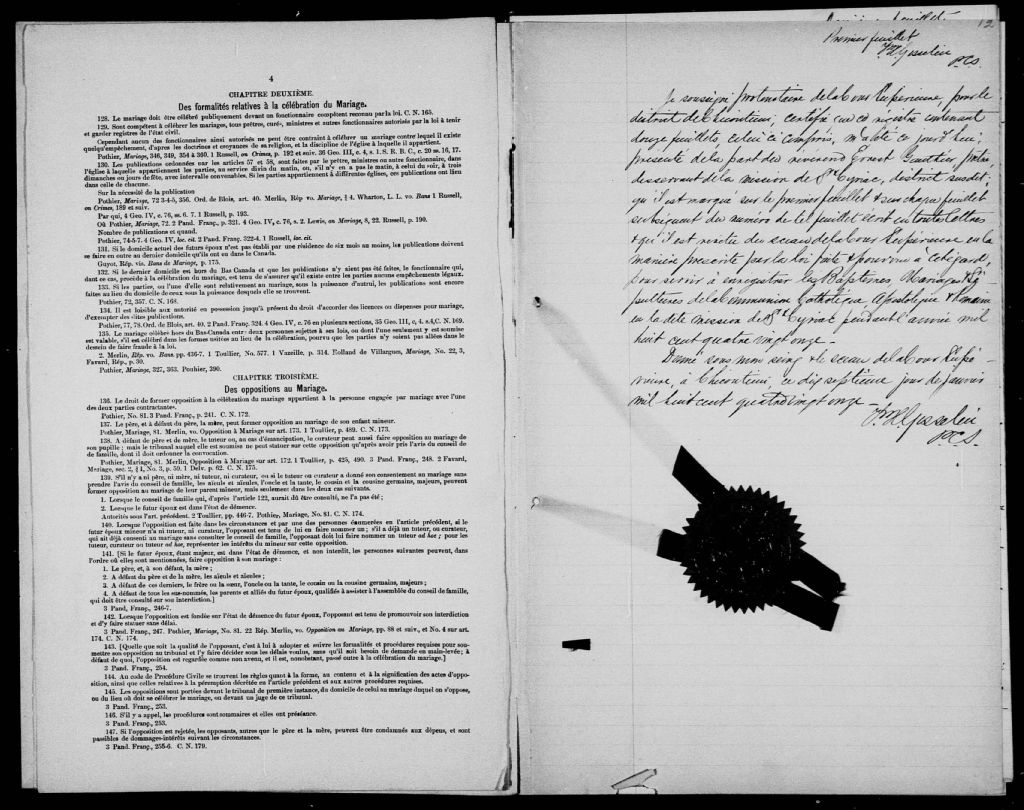 4
CHAPITRE DEUXIÈME.
Des formalités relatives à la célébration du Mariage.
128. Le mariage doit être célébré publiquement devant un fonctionnaire compétent reconnu par la loi. C. N. 165.
129. Sont compétent à célébrer les mariages, tous prêtres, curés, ministres et autres fonctionnaires autorisés par la loi à tenir
et garder registres de l'état civil.
Cependant aucun des fonctionnaires ainsi autorisés ne peut être contraint à célébrer un mariage contre lequel il existe
quelqu'empêchement, d'après les doctrines et croyances de sa religion, et la discipline de l'église à laquelle il appartient.
Pothier, Mariage, 346, 349, 354 à 360. 1 Russell, on Crimes, p. 192 et suiv. 36 Geo. III, c. 4, s. 1. S. R. B. C., c. 20 ss. 16, 17.
130. Les publications ordonnées par les articles 57 et 58, sont faites par le prêtre, ministre ou autre fonctionnaire, dans
l'église à laquelle appartiennent les parties, au service divin du matin, ou, s'il n'y en a pas le matin, à celui du soir, à trois
dimanches ou jours de fête, avec intervalle convenables. Si les parties appartiennent à différentes églises, ces publications ont lieu
dans celle de chacune.
Sur la nécessité de la publication
Pothier, Mariage, 72 3-4-5, 356. Ord. de Blois, art. 40. Merlin, Rép vo. Mariage, § 4. Wharton, L. L. vo. Bans 1 Russell,
on Crimes, 189 et suiv.
Par qui, 4 Geo. IV, c. 76, ss. 6. 7. 1 Russell, p. 193.
Où Pothier, Mariage, 72. 2 Pand. Franç., p. 321. 4 Geo. IV, c. 76, s. 2. Lewis, on Mariage, 8, 22. Russell, p. 190.
Nombre de publications et quand.
Pothier, 74-5-7. 4 Geo. IV, loc. cit. 2 Pand. Franç. 322-4. 1 Russell, loc. cit.
131. Si le domicile actuel des futurs époux n'est pas établi par une résidence de six mois au moins, les publications doivent
se faire en outre au dernier domicile qu'ils ont eu dans le Canada.
Guyot, Rép. vis. Bans de Mariage, p. 175.
132. Si le dernier domicile est hors du Bas Canada et que les publications n'y aient pas été faites, le fonctionnaire qui,
dans ce cas, procède à la célébration du mariage, est tenu de s'assurer qu'il existe entre les parties aucuns empêchements légaux.
133. Si les parties, ou l'une d'elle sont relativement au mariage, sous la puissance d'autrui, les publications sont encore
faites au lieu du domicile de ceux sous la puissance desquels elle se trouvent.
Pothier, 72, 357. C. N. 168.
134. Il est loisible aux autorité en possession jusqu'à présent du droit d'accorder des licences ou dispenses pour mariage,
d'exempter des dites publications.
Pothier, 77, 78. Ord. de Blois, art. 40. 2 Pand Franç. 324. 4 Geo. IV, c. 76 en plusieurs sections, 35 Geo. III, c. 4. s.4,C. N. 169.
135. Le mariage célébré hors du Bas-Canada entre deux personnes sujettes à ses lois, ou dont l'une seulement y est soumise
est valable, s'il est célébré dans les formes usitées au lieu de la célébration, pourvu que les parties n'y soient pas allées dans le
dessein de faire fraude à la loi.
2. Merlin, Rép. vo. Bans. pp. 436-7. 1 Toullier, No. 577. 1 Vazeille, p. 314. Rolland de Villargues, Mariage, No. 22, 3,
Favard, Rép., p. 30.
Pothier, Mariage, 327, 363. Pouhier, 390.
CHAPITRE TROISIÈME.
Des oppositions au Mariage.
136. Le droit de former opposition à la célébration du mariage appartient à la personne engagée par mariage avec l'une
des deux parties contractantes.
Pothier, No. 81. 3 Pand. Franç., p. 241. C. N. 172.
137. Le père, et à défaut du père, la mère, peut former opposition au mariage de son enfant mineur.
Pothier, Mariage, 81. Merlin, vo. Opposition à Mariage sur art. 173. 1 Toullier, p. 489. C. N. 173.
138. A défaut de père et de mère, le tuteur ou, au cas d'émancipation, le curateur peut aussi faire opposition au mariage de
son pupille; mais le tribunal auquel elle est soumise ne peut statuer sur cette opposition qu'après avoir pris l'avis du conseil de
famille, dont il doit ordonner la convocation.
Pothier, Mariage, 81. Merlin, Opposition à Mariage sur art. 172. 1 Toullier, p. 425, 490. 3 Pand. Franç., 248. 2 Favard,
Mariage, sec. 2, § 1, No. 3, p. 59. 1 Delv. p. 62. C. N. 175.
139. S'il n'y a ni père, ni mère, ni tuteur, ni curateur, ou si le tuteur ou curateur a donné son consentement au mariage sans
prendre l'avis du conseil de famille, les aïeuls et aïeules, l'oncle et la tante, le cousin et la cousine germains, majeurs, peuvent
former opposition au mariage de leur parent mineur, mais seulement dans les deux cas suivants.
1. Lorsque le conseil de famille qui, d'après l'article 122, aurait dû être consulté, ne l'a pas été;
2. Lorsque le futur époux est dans l'état de démence.
Autorités sous l'art. précédent. 2 Toullier, pp. 446-7. Pothier, Mariage, No. 81. C. N. 174.
140. Lorsque l'opposition est faite dans les circonstances et par une des personnes énumérées en l'article précédent, si le
futur époux mineur n'a ni tuteur, ni curateur, l'opposant est tenu de lui en faire nommer un; s'il a déjà un tuteur, ou curateur,
qui ait déjà consenti au mariage sans consulter le conseil de famille, l'opposant doit lui faire nommer un tuteur ad hoc; pour les
tuteur, curateur ou tuteur ad hoc, représenter les intérêts du mineur sur cette opposition.
141. [Si le futur époux, étant majeur, est dans l'état de démence, et non interdit, les personnes suivantes peuvent, dans
l'ordre où elles sont mentionnées, faire opposition à son mariage:
1. Le père, et, à son défaut, la mère;
2. A défaut du père et de la mère, les aïeuls et aïeules;
3. A défaut de ces derniers, le frère ou la sœur, l'oncle ou la tante, le cousin ou la cousine germains, majeurs;
4. A défaut de tous les sus-nommés, les parents et alliés du futur époux, qualifiés à assister à l'assemblée du conseil de famille,
qui doit être consulté sur son interdiction.]
3 Pand, Franç., 246-7.
142. Lorsque l'opposition est fondée sur l'état de démence du futur époux, l'opposant est tenu de promouvoir son interdiction
et d'y faire statuer sans délai.
3 Pand. Franç., 247. Pothier, Mariage, No. 81. 22 Rép. Merlin, vo. Opposition au Mariage, pp. 88 et suiv., et No. 4 sur art.
174. C. N. 174.
143. [Quelle que soit la qualité de l'opposant, c'est à lui à adopter et suivre les formalités et procédures requises pour sou-
mettre son opposition au tribunal et l'y faire décider sous les délais voulus, sans qu'il soit besoin de demande en main-levée; à
défaut de quoi, l'opposition est regardée comme non avenu, et il est, nonobstant, passé outre à la célébration du mariage.]
3 Pand. Franç., 254.
144. Au code de Procédure Civile se trouvent les règles quant à la forme, au contenu et à la signification des actes d'oppo-
sition, ainsi que celles relatives à la péremption décrétée en l'article précédent et aux autres procédures requises.
145. Les oppositions sont portées devant le tribunal de première instance, du domicile de celui au mariage duquel on s'oppose,
ou du lieu où doit se célébrer le mariage, ou devant un juge de ce tribunal.
3 Pand. Franç., 253.
146. S'il y a appel, les procédures sont sommaires et elles ont préséance.
3 Pand. Franç., 253.
147. Si l'opposition est rejetée, les opposants, autres que le père et la mère, peuvent être condamnés aux dépens, et sont
passibles de dommages-intérêts suivant les circonstances.
3 Pand. Franç., 255-6. C. N. 179.
12
Premier feuillet
Gosselin
P.C.S.
Je soussigné protonotaire de la Cour Supérieure, pour le
district de Chicoutimi, certifie que ce registre contenant
douze feuillets, celui ci compris, m'a été ce jour d'hui,
présenté de la part du révérend Ernest Gauthier, prêtre,
desservant de la mission de St Cyriac, district susdit;
qu'il est marqué sur le premier feuillet & sur chaque feuillet
subséquent du numéro de tel feuillet écrit en toutes lettres
& qu'il est revêtu du sceau de la Cour Supérieure en la
manière prescrite par la loi faite & pourvue à cet égard,
pour servir à enregistrer les Baptêmes, Mariages & Sé-
pultures de la Communion Catholique Apostolique & Romaine
en la dite mission de St Cyriac pendant l'année mil
huit cent quatre vingt onze.
Donné sous mon seing & le sceau de la Cour Supé-
rieure, à Chicoutimi, ce dix septième jour de janvier
mil huit cent quatre vingt onze.
Gosselin
P.C.S.